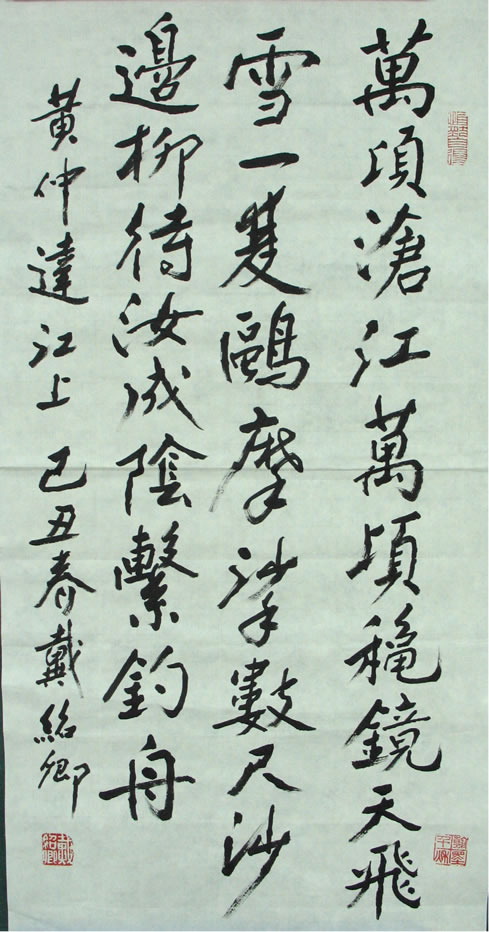 萬頃滄江萬頃穐鏡天飛
雪一雙鷗摩挲數尺沙
邊柳待汝成陰繫釣舟
黃仲達江上 己丑春戴紹卿
戴紹卿